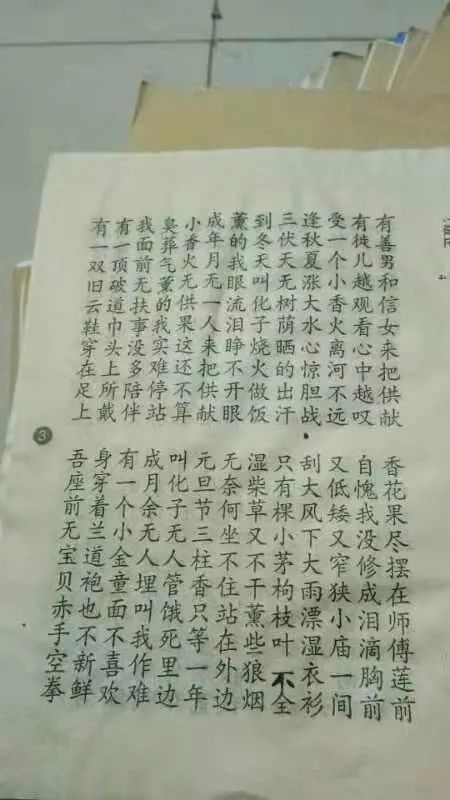 有善男和信女来把供献
香花果尽摆在师傅莲前
有徙儿越观看心中越叹
自愧我没修成泪滴胸前
受一个小香火离河不远
又低矮又窄狭小庙一间
逢秋夏涨大水心惊胆战
刮大风下大雨漂湿衣衫
三伏天无树荫晒的出汗
只有棵小茅枸枝叶不全
到冬天叫化子烧火做饭
湿柴草又不干薰些狼烟
薰的我眼流泪睁不开眼
无奈何坐不住站在外边
成年月无一人来把供献
元旦节三柱香只等一年
小香火无供果这还不算
叫化子无人管饿死里边
臭葬气薰的我实难停站
成月余无人埋叫我作难
我面前无扶事没多陪伴
有一个小金童面不喜欢
有一顶破道巾头上所戴
身穿着兰道袍也不新鲜
有一双旧云鞋穿在足上
吾座前无宝贝赤手空拳
3
4